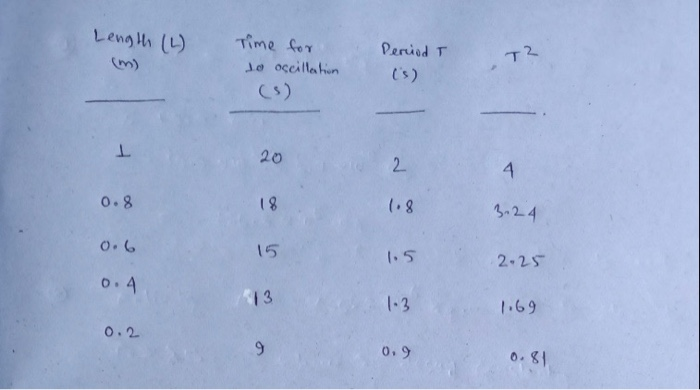 Length (L) Time for Period T T²
(m) 10 oscillation (s)
(s)
1 20 2 4
0.8 18 1.8 3.24
0.6 15 1.5 2.25
0.4 13 1.3 1.69
0.2 9 0.9 0.81